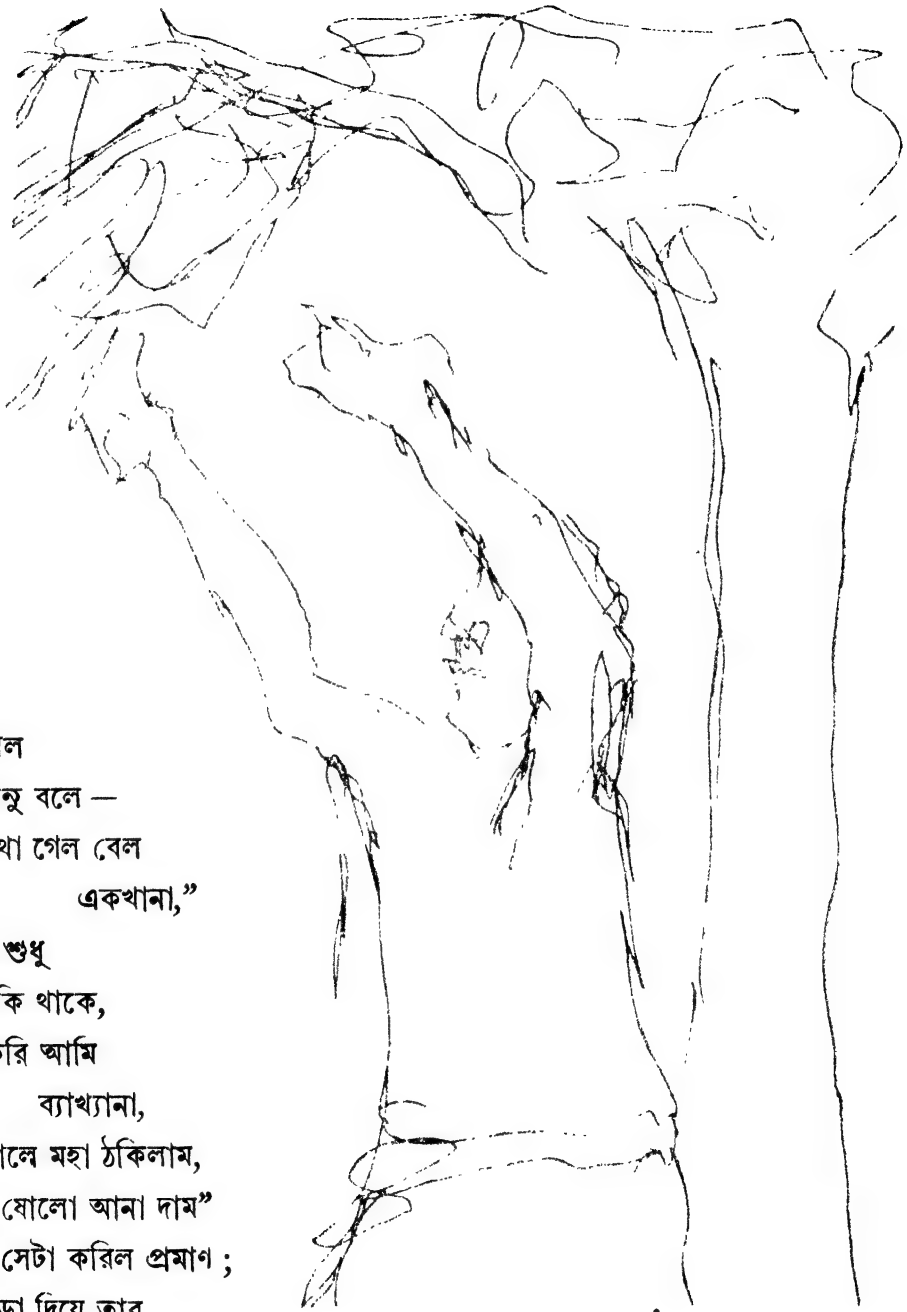 নু বলে —
থা গেল বেল
একখানা,”
শুধু
কি থাকে,
রি আমি
ব্যাখ্যানা,
মহা ঠকিলাম,
ষোলো আনা দাম”
সেটা করিল প্রমাণ ;
দিয়ে তার